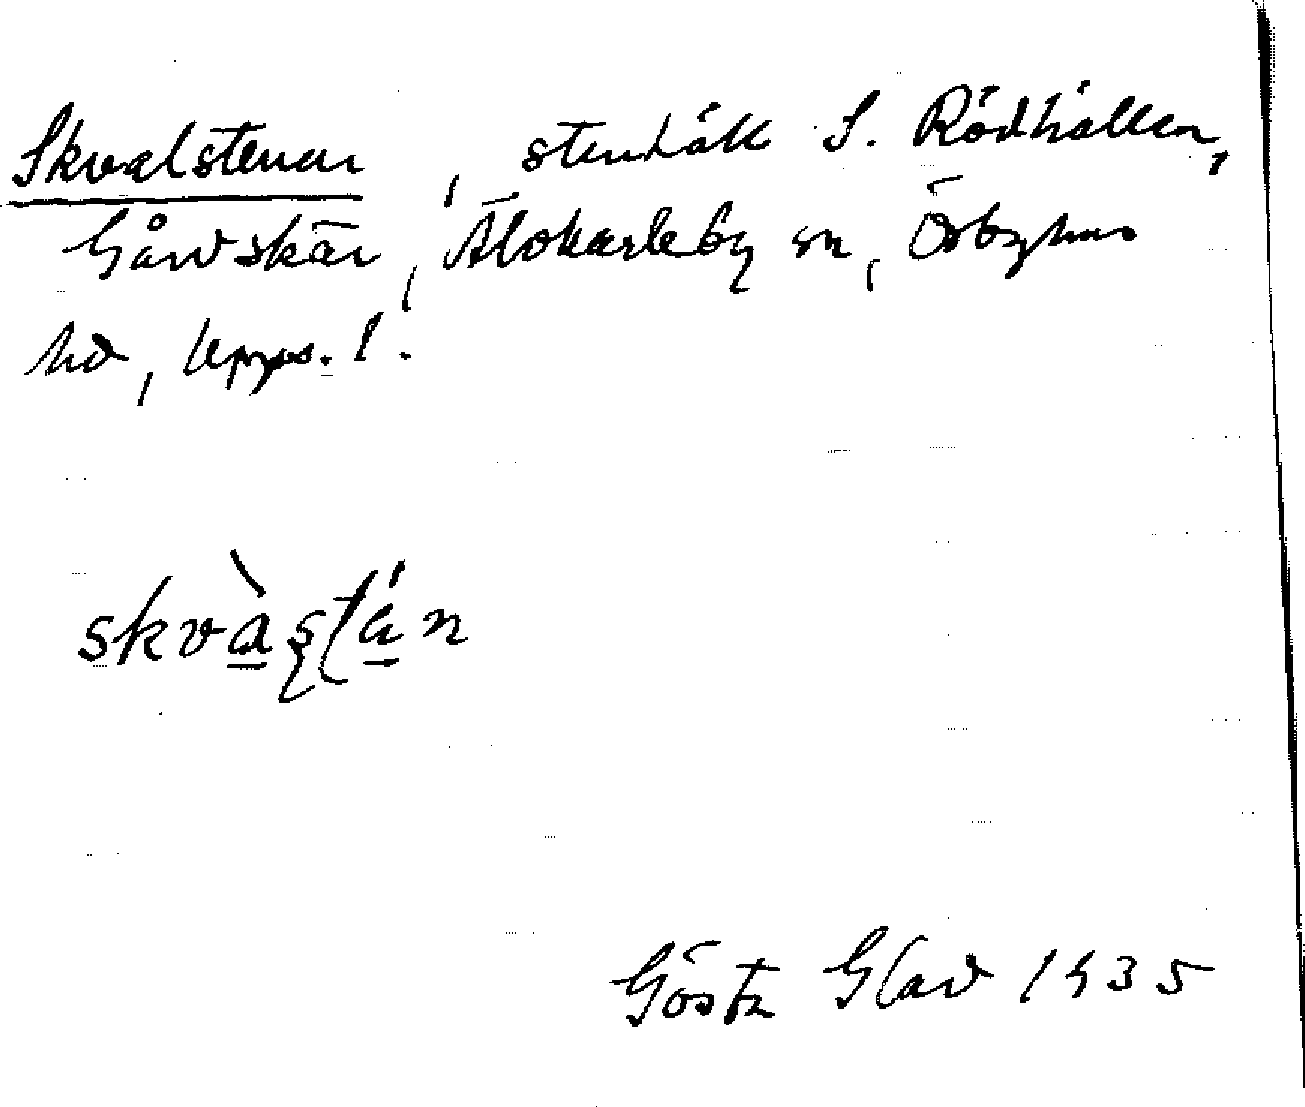 Skvalstenen, stenhäll S. Rödhällen,
Gårdskär, Älvkarleby sn, Örbyhus
hd, Upps. l.
Gösta Glad 1935